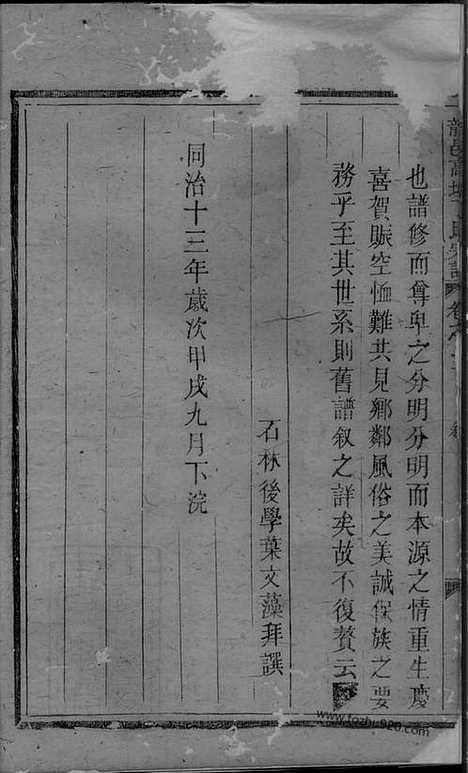 也譜修而尊卑之分明分明而本源之情重生慶
喜賀賑空恤難共見鄉鄰風俗之美誠保族之要
務乎至其世系則舊譜叙之詳矣故不復贅云
石林後學葉文藻拜譔
同治十三年歲次甲戌九月下浣
www.fozhu920.com